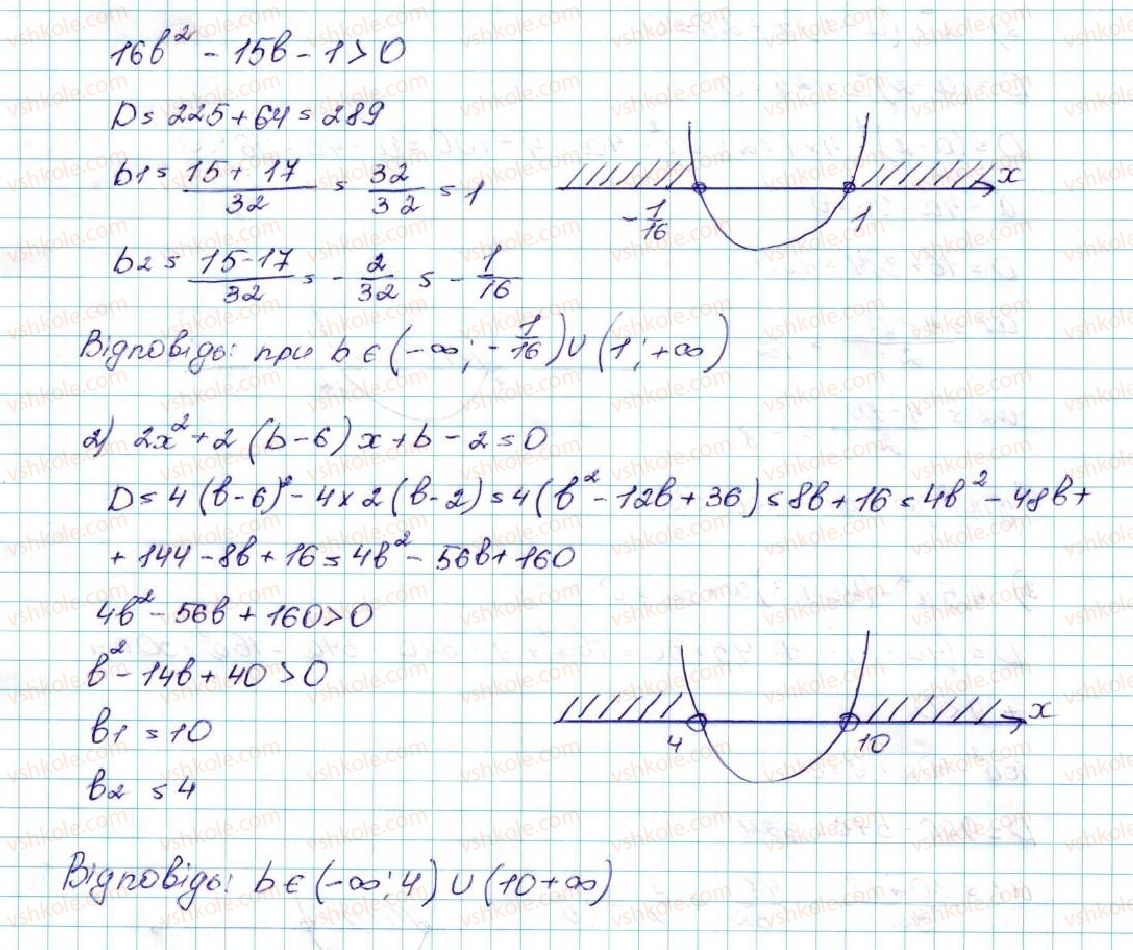 16b² - 15b - 1 > 0
D = 225 + 64 = 289
b1 = (15 + 17)/32 = 32/32 = 1
b2 = (15 - 17)/32 = - 2/32 = - 1/16
- 1/16 1 x
Відповідь: при b ∈ (-∞; - 1/16) ∪ (1; +∞)
2) 2x² + 2 (b - 6) x + b - 2 = 0
D = 4 (b - 6)² - 4 × 2 (b - 2) = 4 (b² - 12b + 36) = 8b + 16 = 4b² - 48b +
+ 144 - 8b + 16 = 4b² - 56b + 160
4b² - 56b + 160 > 0
b² - 14b + 40 > 0
b1 = 10
b2 = 4
4 10 x
Відповідь: b ∈ (-∞; 4) ∪ (10 + ∞)